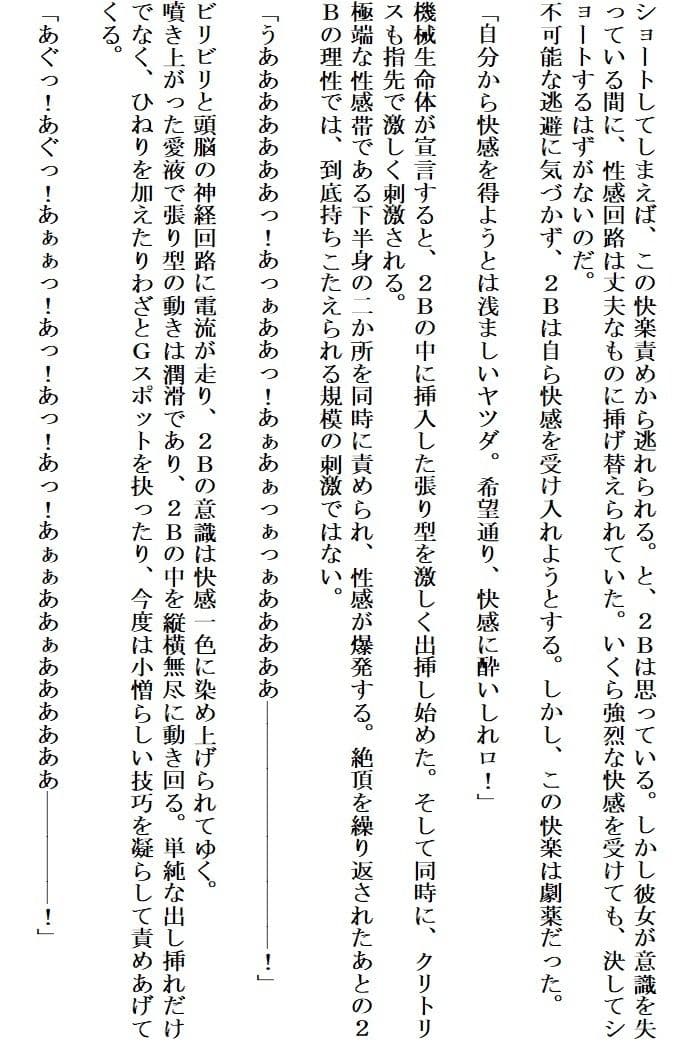 ショートしてしまえば、この快楽責めから逃れられる。と、２Ｂは思っている。しかし彼女が意識を失
っている間に、性感回路は丈夫なものに挿げ替えられていた。いくら強烈な快感を受けても、決してシ
ョートするはずがないのだ。
不可能な逃避に気づかず、２Ｂは自ら快感を受け入れようとする。しかし、この快楽は劇薬だった。
「自分から快感を得ようとは浅ましいヤツダ。希望通り、快感に酔いしれロ！」
機械生命体が宣言すると、２Ｂの中に挿入した張り型を激しく出挿し始めた。そして同時に、クリトリ
スも指先で激しく刺激される。
極端な性感帯である下半身の二か所を同時に責められ、性感が爆発する。絶頂を繰り返されたあとの２
Ｂの理性では、到底持ちこたえられる規模の刺激ではない。
「うあああああああっ！あっぁああっ！あぁあぁっぁっぁあああああ―――――――――！」
ビリビリと頭脳の神経回路に電流が走り、２Ｂの意識は快感一色に染め上げられてゆく。
噴き上がった愛液で張り型の動きは潤滑であり、２Ｂの中を縦横無尽に動き回る。単純な出し挿れだけ
でなく、ひねりを加えたりわざとＧスポットを抉ったり、今度は小憎らしい技巧を凝らして責めあげて
くる。
「あぐっ！あぐっ！あぁぁっ！あっ！あっ！あっ！あぁぁああぁああああああ――――！」